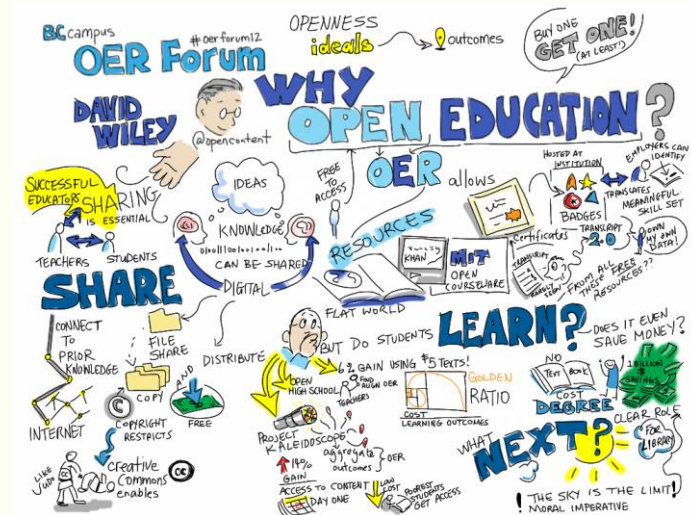 BCcampus
#oerforum12
OER Forum
OPENNESS
ideals
outcomes
BUY ONE
GET ONE!
(AT LEAST!)
DAVID
WILEY
@opencontent
WHY
OPEN EDUCATION?
SUCCESSFUL
EDUCATORS
SHARING
IS ESSENTIAL
TEACHERS
STUDENTS
IDEAS
KNOWLEDGE
CAN BE SHARED
DIGITAL
FREE
TO
ACCESS
OER allows
RESOURCES
KHAN
MIT
OPEN
COURSEWARE
FLAT WORLD
Certificates
HOSTED AT
INSTITUTION
BADGES
TRANSLATES
EMPLOYERS CAN
IDENTIFY
MEANINGFUL
SKILL SET
TRANSCRIPT
2.0
OWN
MY OWN
DATA!
TRANSCRIPT
FROM ALL
THESE FREE
RESOURCES??
SHARE
CONNECT
TO
PRIOR
KNOWLEDGE
INTERNET
FILE
SHARE
DISTRIBUTE
COPY
AND
FREE
COPYRIGHT
RESTRICTS
LIKE
JUDO
creative
commons
enables
BUT DO STUDENTS
LEARN?
6% GAIN USING $5 TEXTS!
OPEN
HIGH SCHOOL
FIND
ALIGN OER
TEACHERS
GOLDEN
RATIO
COST
LEARNING OUTCOMES
PROJECT
KALEIDOSCOPE
aggregate
outcomes
OER
14%
GAIN
ACCESS TO CONTENT
DAY ONE
LOW
COST
POOREST
STUDENTS
GET ACCESS
DOES IT EVEN
SAVE MONEY?
NO
TEXT BOOK
COST
DEGREE
1 BILLION
$
SAVINGS
WHAT
NEXT?
CLEAR ROLE
FOR
LIBRARY
! THE SKY IS THE LIMIT!
MORAL IMPERATIVE